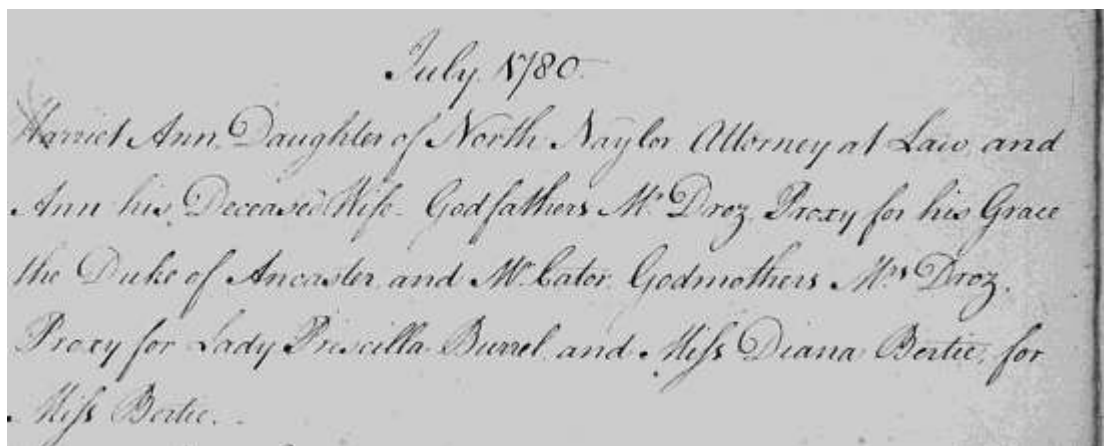 July 1780
Harriet Ann Daughter of North Naylor Attorney at Law and
Ann his Deceased Wife. Godfathers Mr Droz Proxy for his Grace
the Duke of Ancaster and Mr Cator. Godmothers Mrs Droz.
Proxy for Lady Priscilla Burrel and Miss Diana Bertie, for
Miss Bertie.